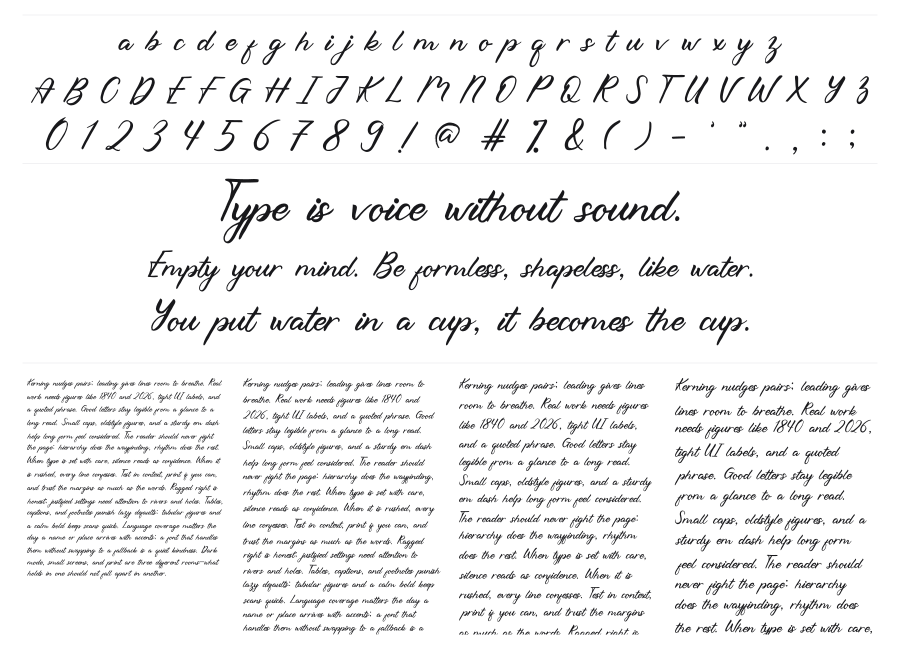 a b c d e f g h i j k l m n o p q r s t u v w x y z
A B C D E F G H I J K L M N O P Q R S T U V W X Y Z
0 1 2 3 4 5 6 7 8 9 ! @ # % & ( ) - ' " . , : ;
Type is voice without sound.
Empty your mind. Be formless, shapeless, like water.
You put water in a cup, it becomes the cup.
Kerning nudges pairs; leading gives lines room to breathe. Real
work needs figures like 1840 and 2026, tight UI labels, and
a quoted phrase. Good letters stay legible from a glance to a
long read. Small caps, oldstyle figures, and a sturdy em dash
help long form feel considered. The reader should never fight
the page: hierarchy does the wayfinding, rhythm does the rest.
When type is set with care, silence reads as confidence. When it
is rushed, every line confesses. Test in context, print if you can,
and trust the margins as much as the words. Ragged right is
honest; justified settings need attention to rivers and holes. Tables,
captions, and footnotes punish lazy defaults: tabular figures and
a calm bold beep scans quick. Language coverage matters the
day a name or place arrives with accents: a font that handles
them without swapping to a fallback is a quiet kindness. Dark
mode, small screens, and print are three different rooms—what
holds in one should not fall apart in another.
Kerning nudges pairs; leading gives lines room to
breathe. Real work needs figures like 1840 and
2026, tight UI labels, and a quoted phrase. Good
letters stay legible from a glance to a long read.
Small caps, oldstyle figures, and a sturdy em dash
help long form feel considered. The reader should
never fight the page: hierarchy does the wayfinding,
rhythm does the rest. When type is set with care,
silence reads as confidence. When it is rushed, every
line confesses. Test in context, print if you can, and
trust the margins as much as the words. Ragged
right is honest; justified settings need attention to
rivers and holes. Tables, captions, and footnotes punish
lazy defaults: tabular figures and a calm bold beep
scans quick. Language coverage matters the day a
name or place arrives with accents: a font that
handles them without swapping to a fallback is a
Kerning nudges pairs; leading gives lines
room to breathe. Real work needs figures
like 1840 and 2026, tight UI labels,
and a quoted phrase. Good letters stay
legible from a glance to a long read.
Small caps, oldstyle figures, and a sturdy
em dash help long form feel considered.
The reader should never fight the page:
hierarchy does the wayfinding, rhythm
does the rest. When type is set with care,
silence reads as confidence. When it is
rushed, every line confesses. Test in context,
print if you can, and trust the margins
as much as the words. Ragged right is
Kerning nudges pairs; leading gives
lines room to breathe. Real work
needs figures like 1840 and 2026,
tight UI labels, and a quoted
phrase. Good letters stay legible
from a glance to a long read.
Small caps, oldstyle figures, and a
sturdy em dash help long form
feel considered. The reader should
never fight the page: hierarchy
does the wayfinding, rhythm does
the rest. When type is set with care,